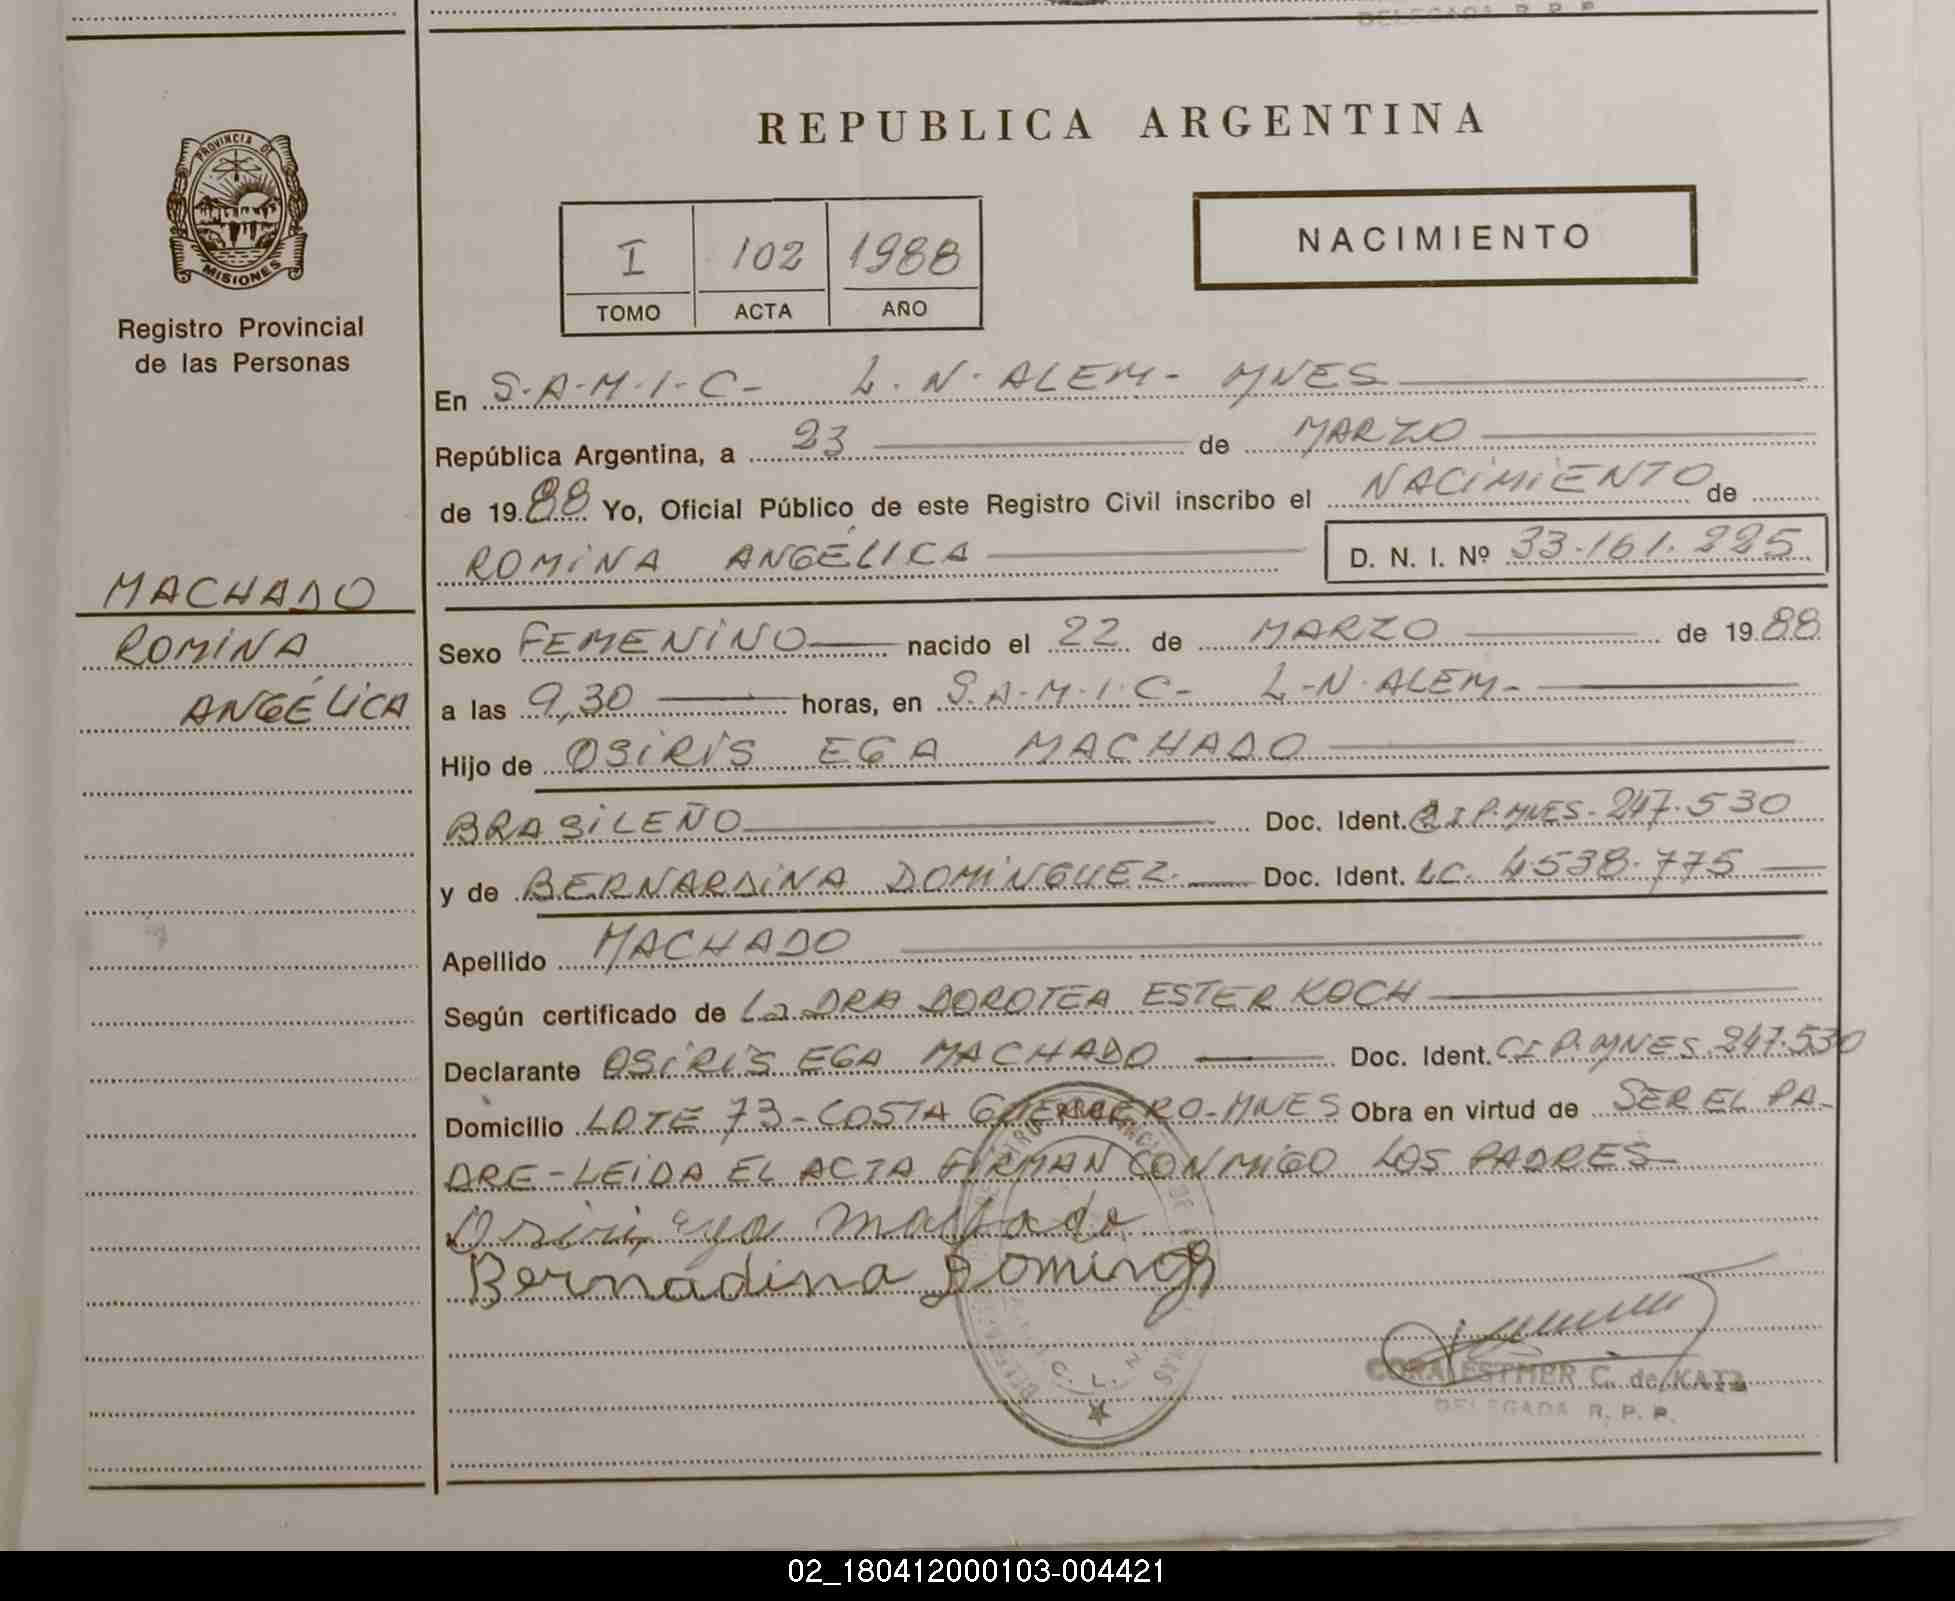 DELEGADA R. P. P.
REPUBLICA ARGENTINA
PROVINCIA DE
MISIONES
Registro Provincial
de las Personas
I 102 1988
TOMO ACTA AÑO
NACIMIENTO
En S.A.M.I.C- L.N.ALEM- MNES
República Argentina, a 23 de MARZO
de 1988 Yo, Oficial Público de este Registro Civil inscribo el NACIMIENTO de
ROMINA ANGÉLICA D. N. I. Nº 33.161.225
MACHADO
ROMINA
ANGÉLICA
Sexo FEMENINO nacido el 22 de MARZO de 1988
a las 9,30 horas, en S.A.M.I.C- L-N.ALEM-
Hijo de OSIRIS EGA MACHADO
BRASILEÑO Doc. Ident. C.I.P.MNES-247.530
y de BERNARDINA DOMINGUEZ. Doc. Ident. LC. 4.538.775
Apellido MACHADO
Según certificado de La DRA DOROTEA ESTER KOCH
Declarante OSIRIS EGA MACHADO Doc. Ident. CI P.MNES 247.530
Domicilio LOTE 73-COSTA GUERRERO-MNES Obra en virtud de SER EL PA-
DRE-LEIDA EL ACTA FIRMAN CONMIGO LOS PADRES
Osiris ega machado
Bernadina Doming
CORA ESTHER C. de KATZ
DELEGADA R. P. P.
02_180412000103-004421